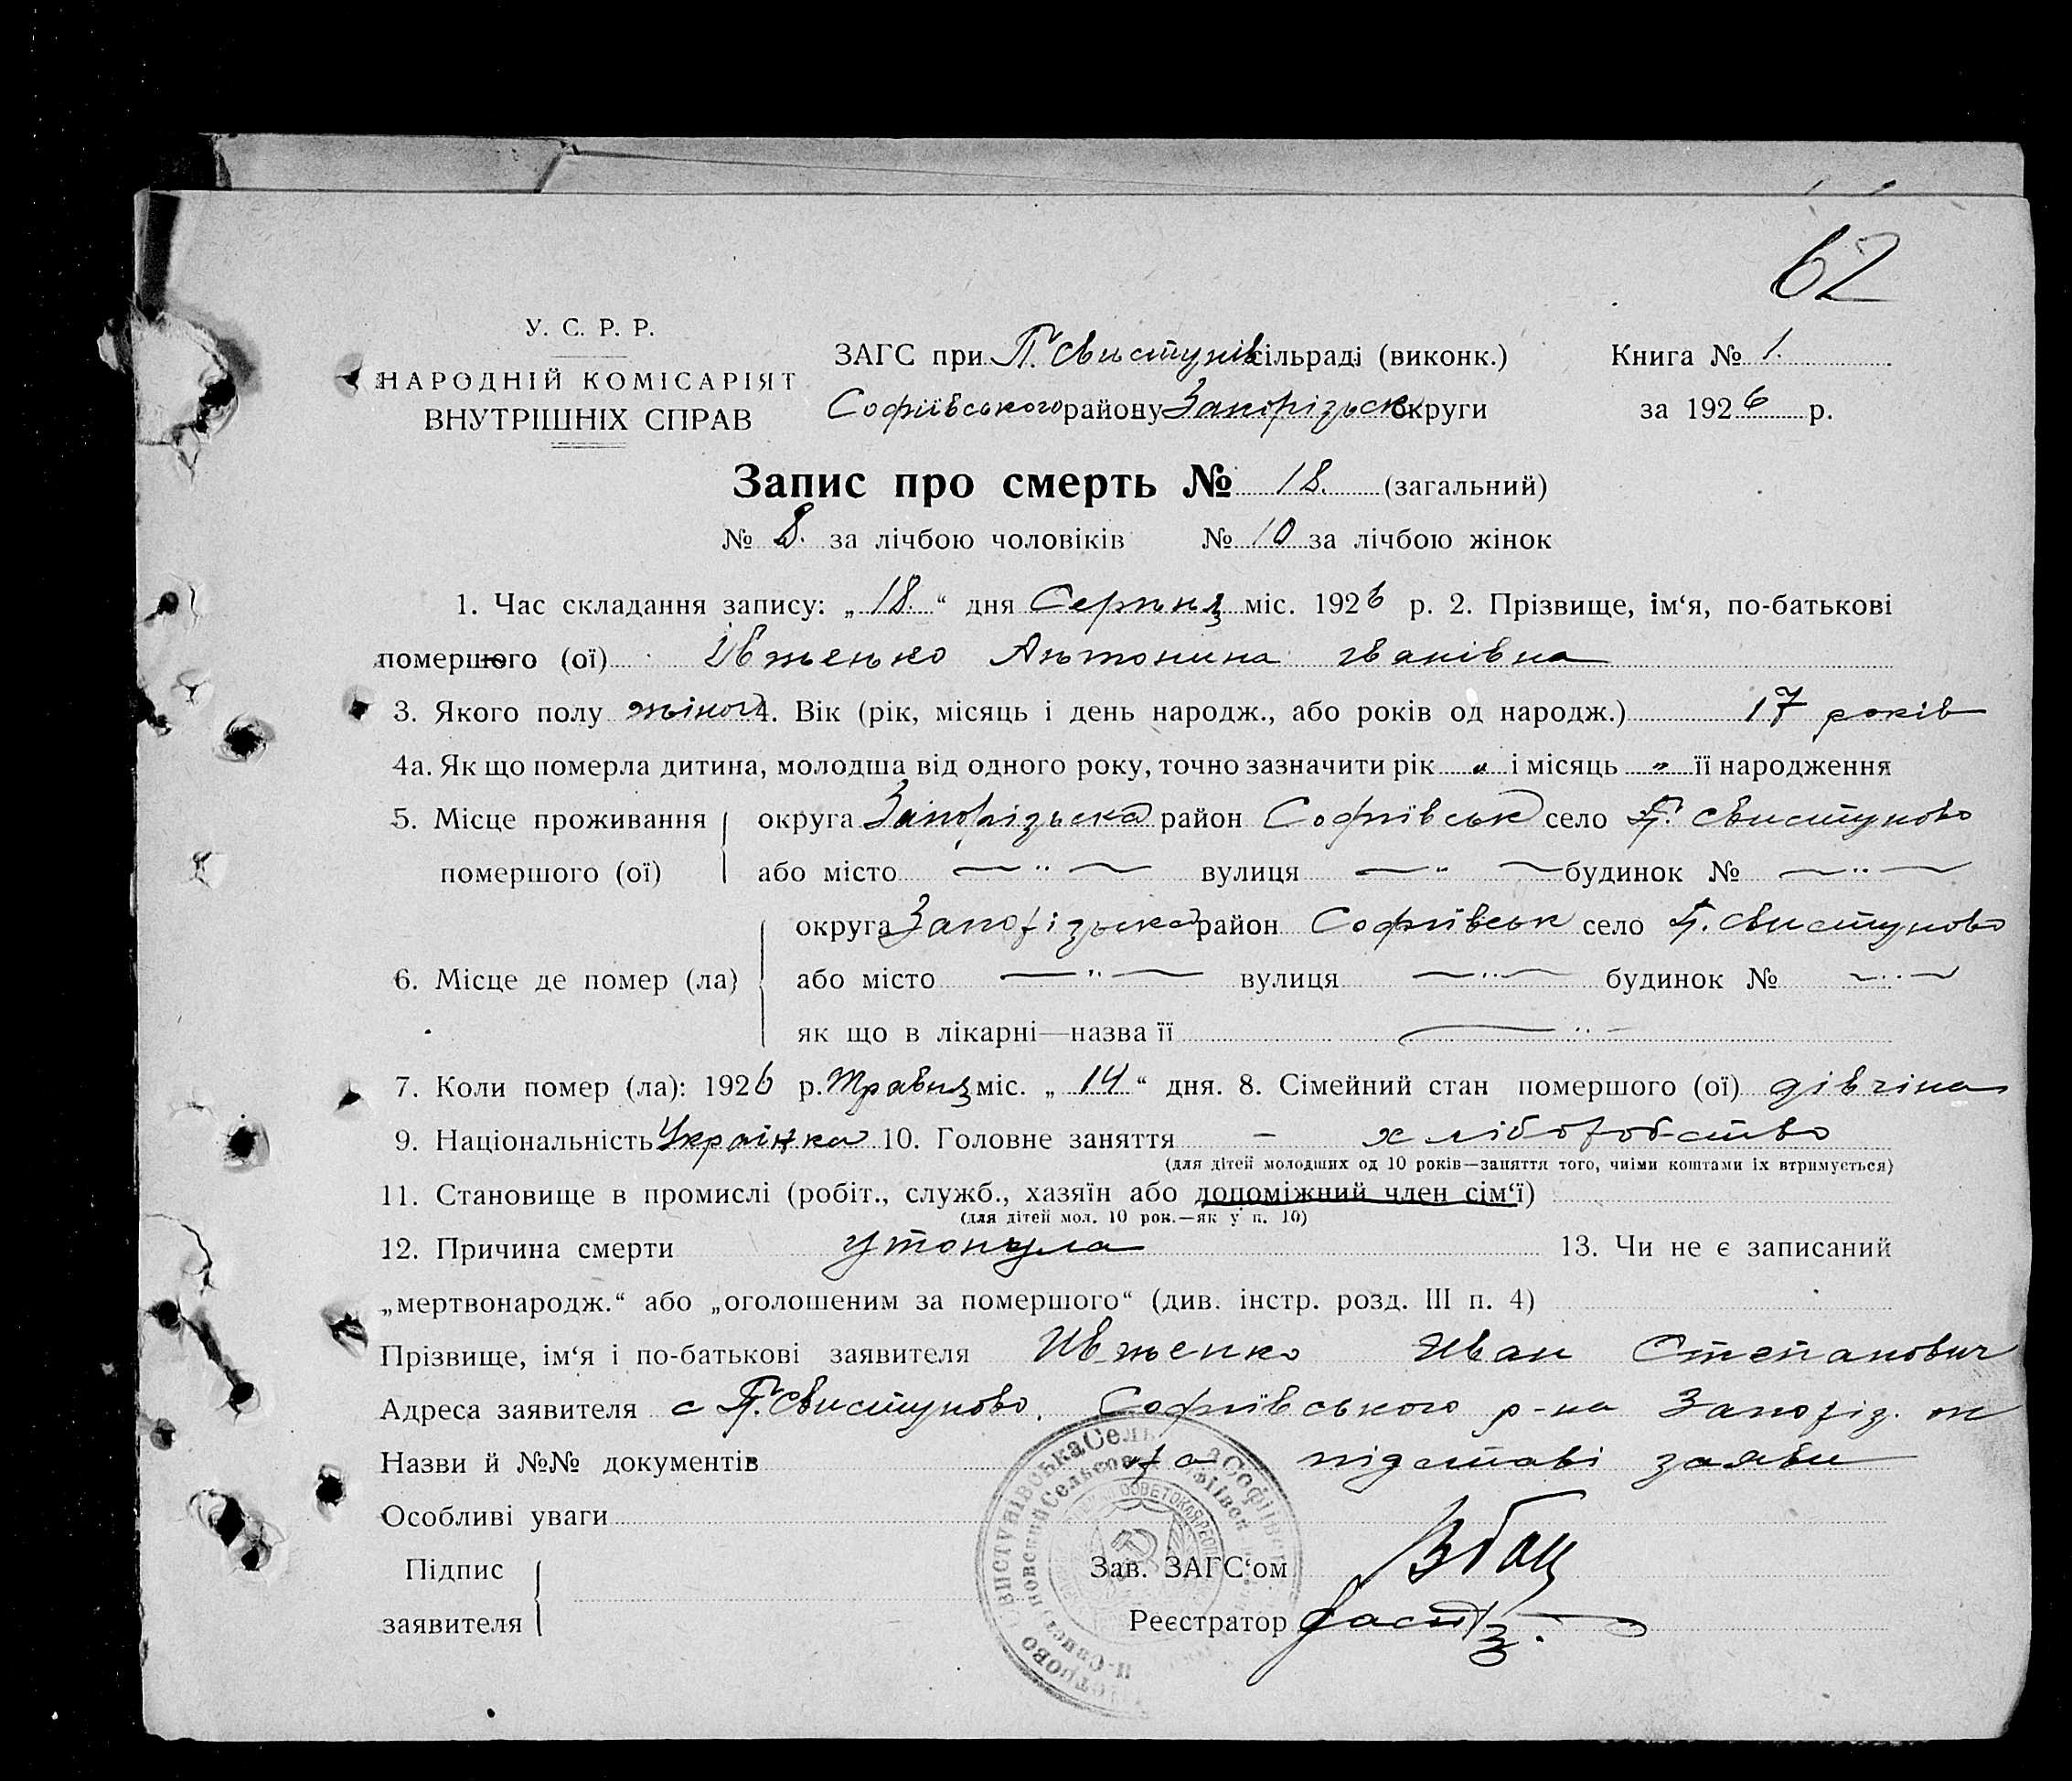 62
У. С. Р. Р.
НАРОДНІЙ КОМІСАРІЯТ
ВНУТРІШНІХ СПРАВ
ЗАГС при П. Свистунів сільраді (виконк.)
Софіївського району Запорізьск округи
Книга № 1.
за 1926 р.
Запис про смерть № 18. (загальний)
№ 8. за лічбою чоловіків № 10 за лічбою жінок
1. Час складання запису: „ 18. “ дня Серпня міс. 1926 р. 2. Прізвище, ім‘я, по-батькові
помершого (ої) Івженко Антонина Іванівна
3. Якого полу жіноч 4. Вік (рік, місяць і день народж., або років од народж.) 17 років
4а. Як що померла дитина, молодша від одного року, точно зазначити рік „ і місяць „ її народження
5. Місце проживання помершого (ої) округа Запорізьска район Софіївськ село П. Свистуново
або місто — „ — вулиця — „ — будинок № — „ —
6. Місце де помер (ла) округа Запорізьска район Софіївськ село П. Свистуново
або місто — „ — вулиця — „ — будинок № — „ —
як що в лікарні—назва її — „ —
7. Коли помер (ла): 1926 р. Травня міс. „ 14 “ дня. 8. Сімейний стан помершого (ої) дівчина
9. Національність Українка 10. Головне заняття - хліборобство
(для дітей молодших од 10 років—заняття того, чиїми коштами їх втримується)
11. Становище в промислі (робіт., служб., хазяїн або допоміжний член сім‘ї)
(для дітей мол. 10 рок.—як у п. 10)
12. Причина смерти утонула 13. Чи не є записаний
„мертвонародж.“ або „оголошеним за помершого“ (див. інстр. розд. III п. 4)
Прізвище, ім‘я і по-батькові заявителя Ивженко Иван Степанович
Адреса заявителя с П. Свистуново. Софіївського р-на Запоріз. ок
Назви й №№ документів на підставі заяви
Особливі уваги
Підпис заявителя
Зав. ЗАГС‘ом
Реєстратор